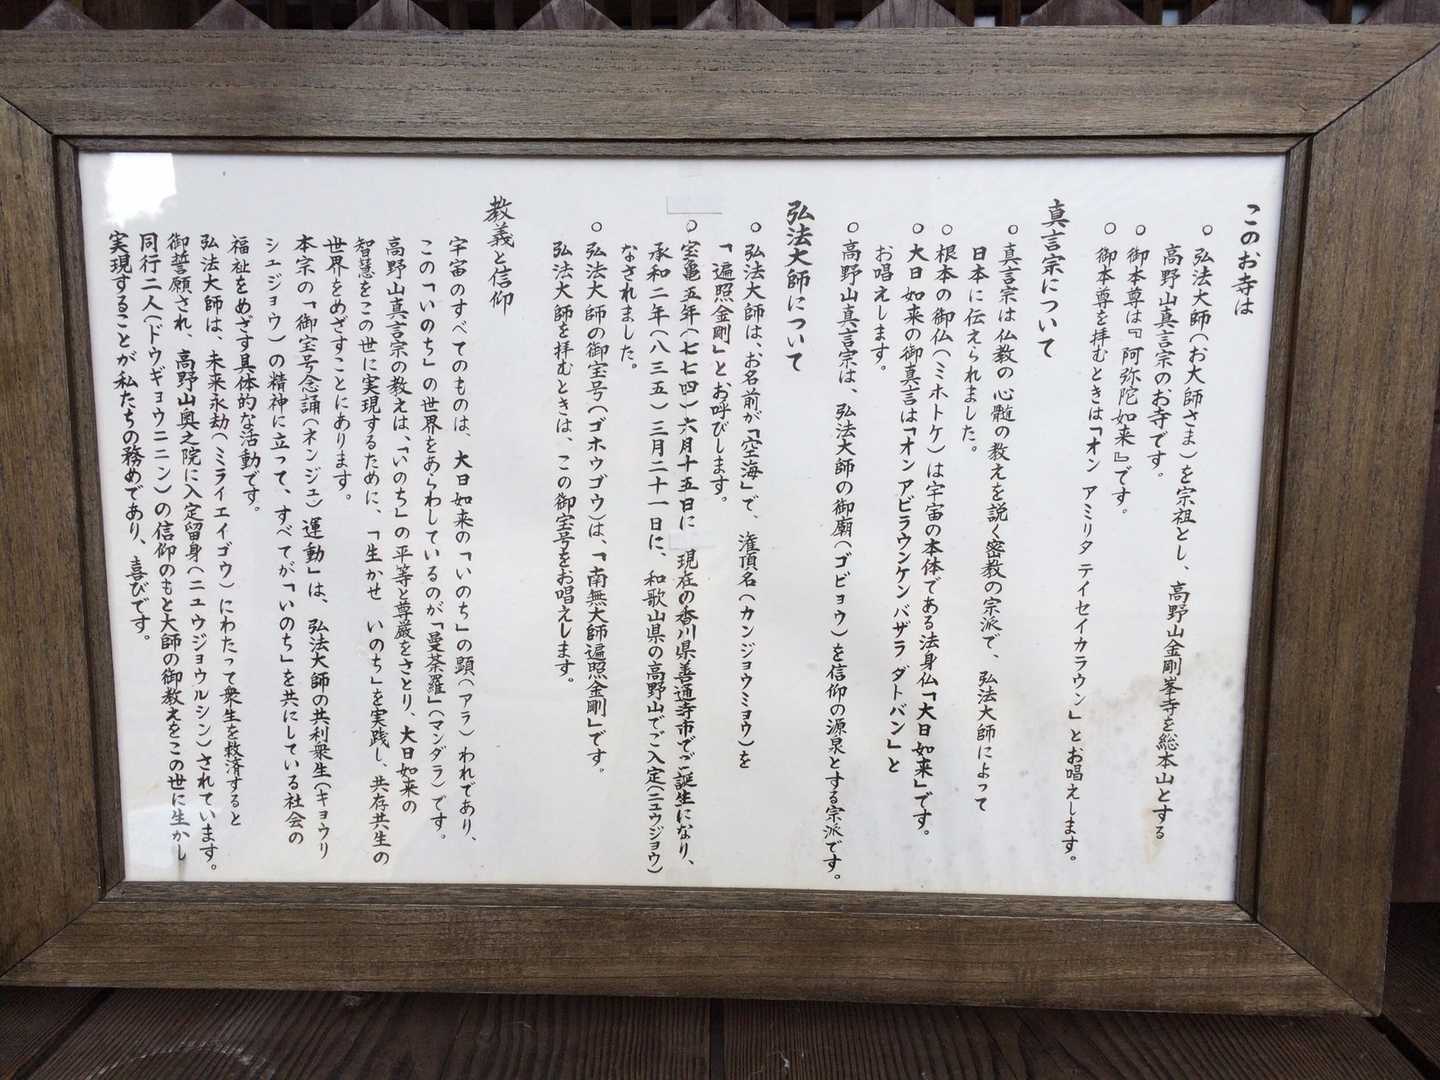 このお寺は
○ 弘法大師(お大師さま)を宗祖とし、高野山金剛峯寺を総本山とする
高野山真言宗のお寺です。
○ 御本尊は『阿弥陀如来』です。
○ 御本尊を拝むときは「オン アミリタ テイセイカラウン」とお唱えします。
真言宗について
○ 真言宗は仏教の心髄の教えを説く密教の宗派で、弘法大師によって
日本に伝えられました。
○ 根本の御仏(ミホトケ)は宇宙の本体である法身仏「大日如来」です。
○ 大日如来の御真言は「オン アビラウンケン バザラ ダトバン」と
お唱えします。
○ 高野山真言宗は、弘法大師の御廟(ゴビョウ)を信仰の源泉とする宗派です。
弘法大師について
○ 弘法大師は、お名前が「空海」で、潅頂名(カンジョウミョウ)を
「遍照金剛」とお呼びします。
○ 宝亀五年(七七四)六月十五日に現在の香川県善通寺市でご誕生になり、
承和二年(八三五)三月二十一日に、和歌山県の高野山でご入定(ニュウジョウ)
なされました。
○ 弘法大師の御宝号(ゴホウゴウ)は、「南無大師遍照金剛」です。
弘法大師を拝むときは、この御宝号をお唱えします。
教義と信仰
宇宙のすべてのものは、大日如来の「いのち」の顕(アラ)われであり、
この「いのち」の世界をあらわしているのが「曼荼羅」(マンダラ)です。
高野山真言宗の教えは、「いのち」の平等と尊厳をさとり、大日如来の
智慧をこの世に実現するために、「生かせ いのち」を実践し、共存共生の
世界をめざすことにあります。
本宗の「御宝号念誦(ネンジュ)運動」は、弘法大師の共利衆生(キョウリ
シュジョウ)の精神に立って、すべてが「いのち」を共にしている社会の
福祉をめざす具体的な活動です。
弘法大師は、未来永劫(ミライエイゴウ)にわたって衆生を救済すると
御誓願され、高野山奥之院に入定留身(ニュウジョウルシン)されています。
同行二人(ドウギョウニニン)の信仰のもと大師の御教えをこの世に生かし
実現することが私たちの務めであり、喜びです。